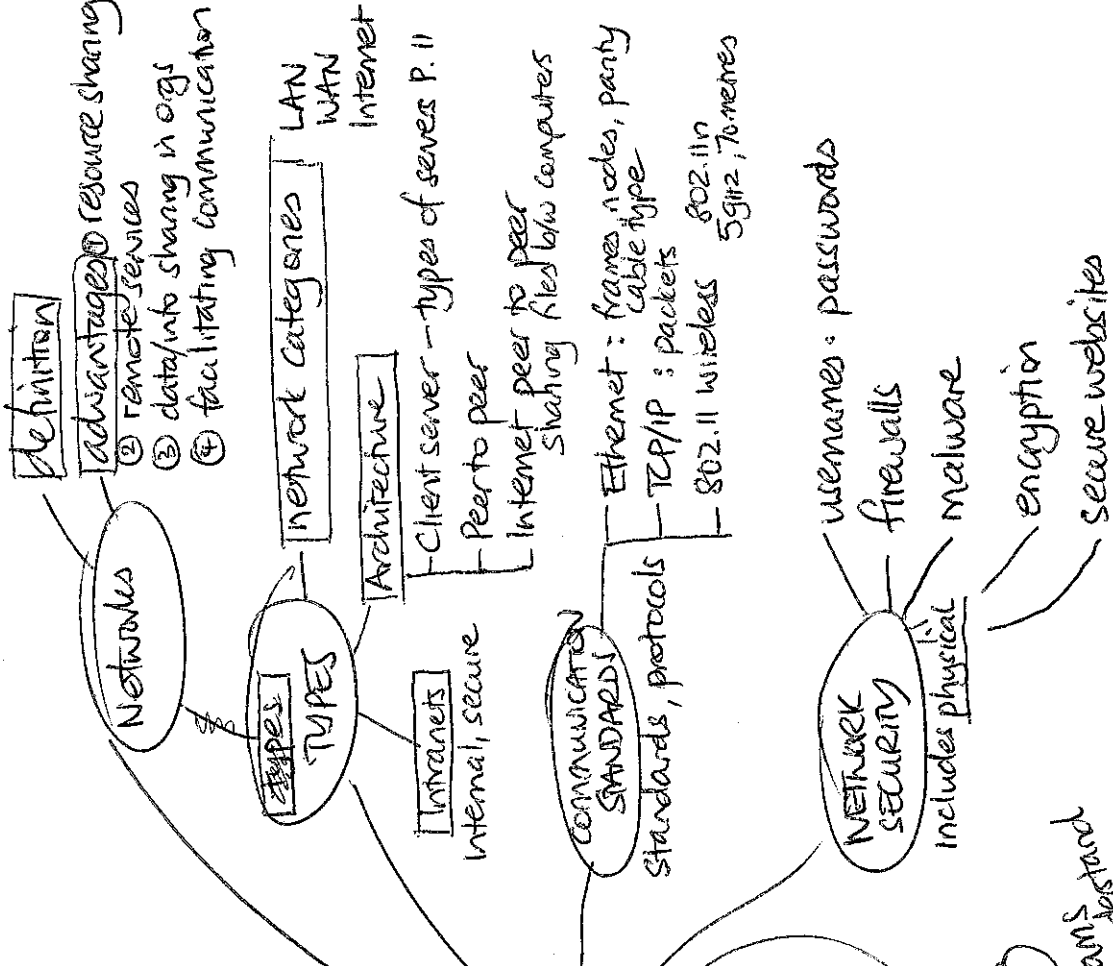 definition
Networks
advantages ① resource sharing
② remote services
③ data/info sharing in orgs
④ facilitating communication
types
TYPES
network categories
LAN
WAN
Internet
Architecture
Client server - types of severs P.11
Peer to peer
Internet peer to peer
sharing files b/w computers
Intranets
internal, secure
COMMUNICATION
STANDARDS
Standards, protocols
Ethernet : frames nodes, parity
cable type
TCP/IP : packets
802.11 wireless
802.11n
5gHz, 70metres
NETWORK
SECURITY
includes physical
usernames · passwords
firewalls
malware
encryption
secure websites